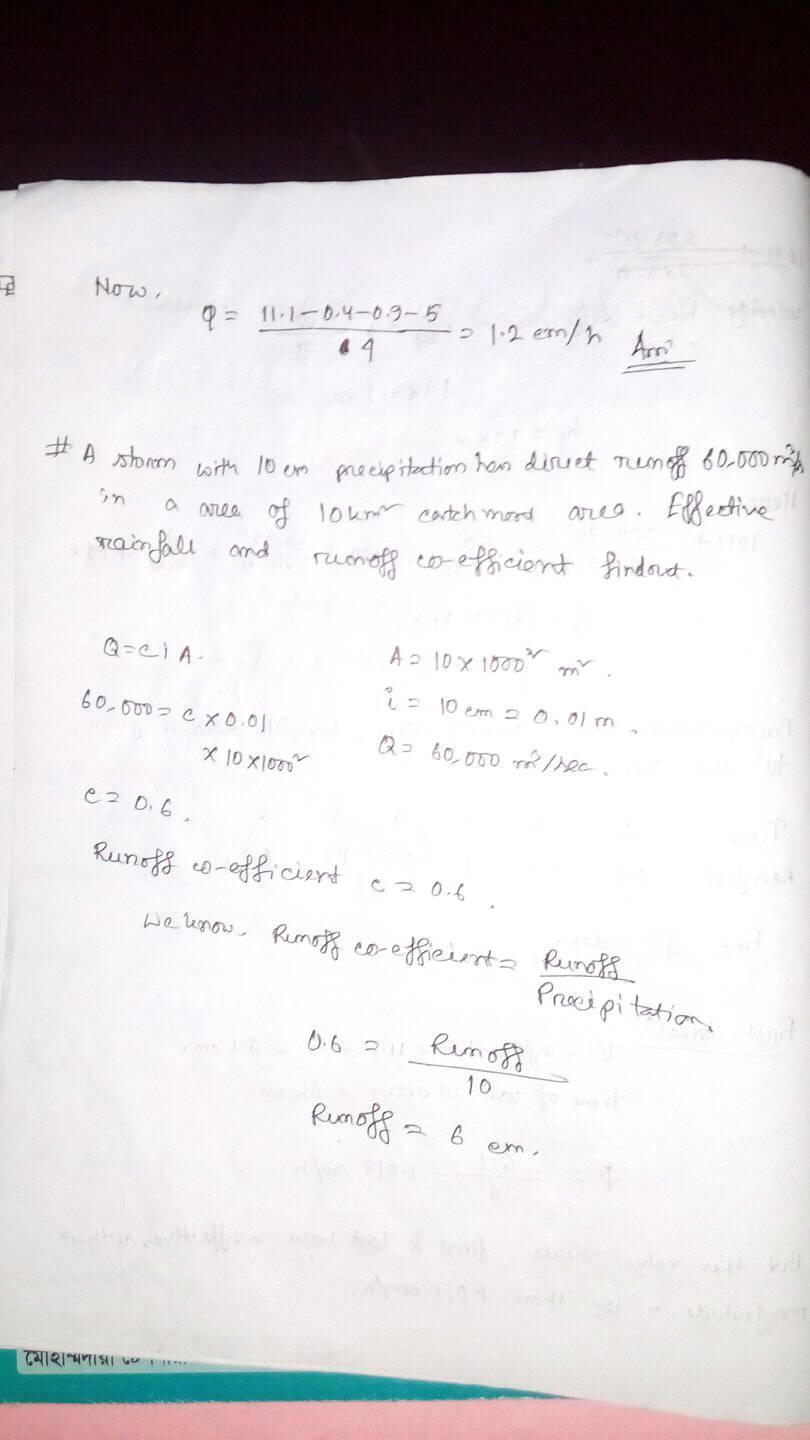 Now,
φ = 11.1-0.4-0.9-5 / 4 = 1.2 cm/h Ans
# A storm with 10 cm precipitation has direct runoff 60,000 m³/s
in a area of 10 km² catchmond area. Effective
rainfall and runoff co-efficient findout.
Q = c i A.
A = 10 x 1000² m².
60,000 = c x 0.01
x 10 x 1000²
i = 10 cm = 0.01 m.
Q = 60,000 m³/sec.
c = 0.6.
Runoff co-efficient c = 0.6.
We know, Runoff co-efficient = Runoff / Precipitation.
0.6 = Runoff / 10
Runoff = 6 cm.